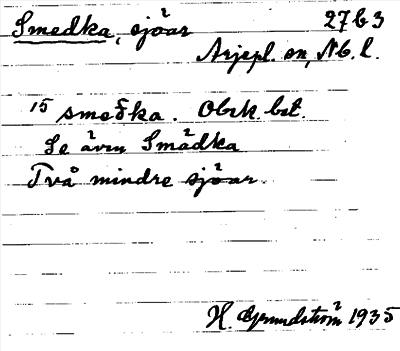 Smedka, sjöar 27 b 3
Arjepl. sn, Nb. l.
15 smeđka. Obek. bet.
Se även Smådka
Två mindre sjöar.
H. Grundström 1935